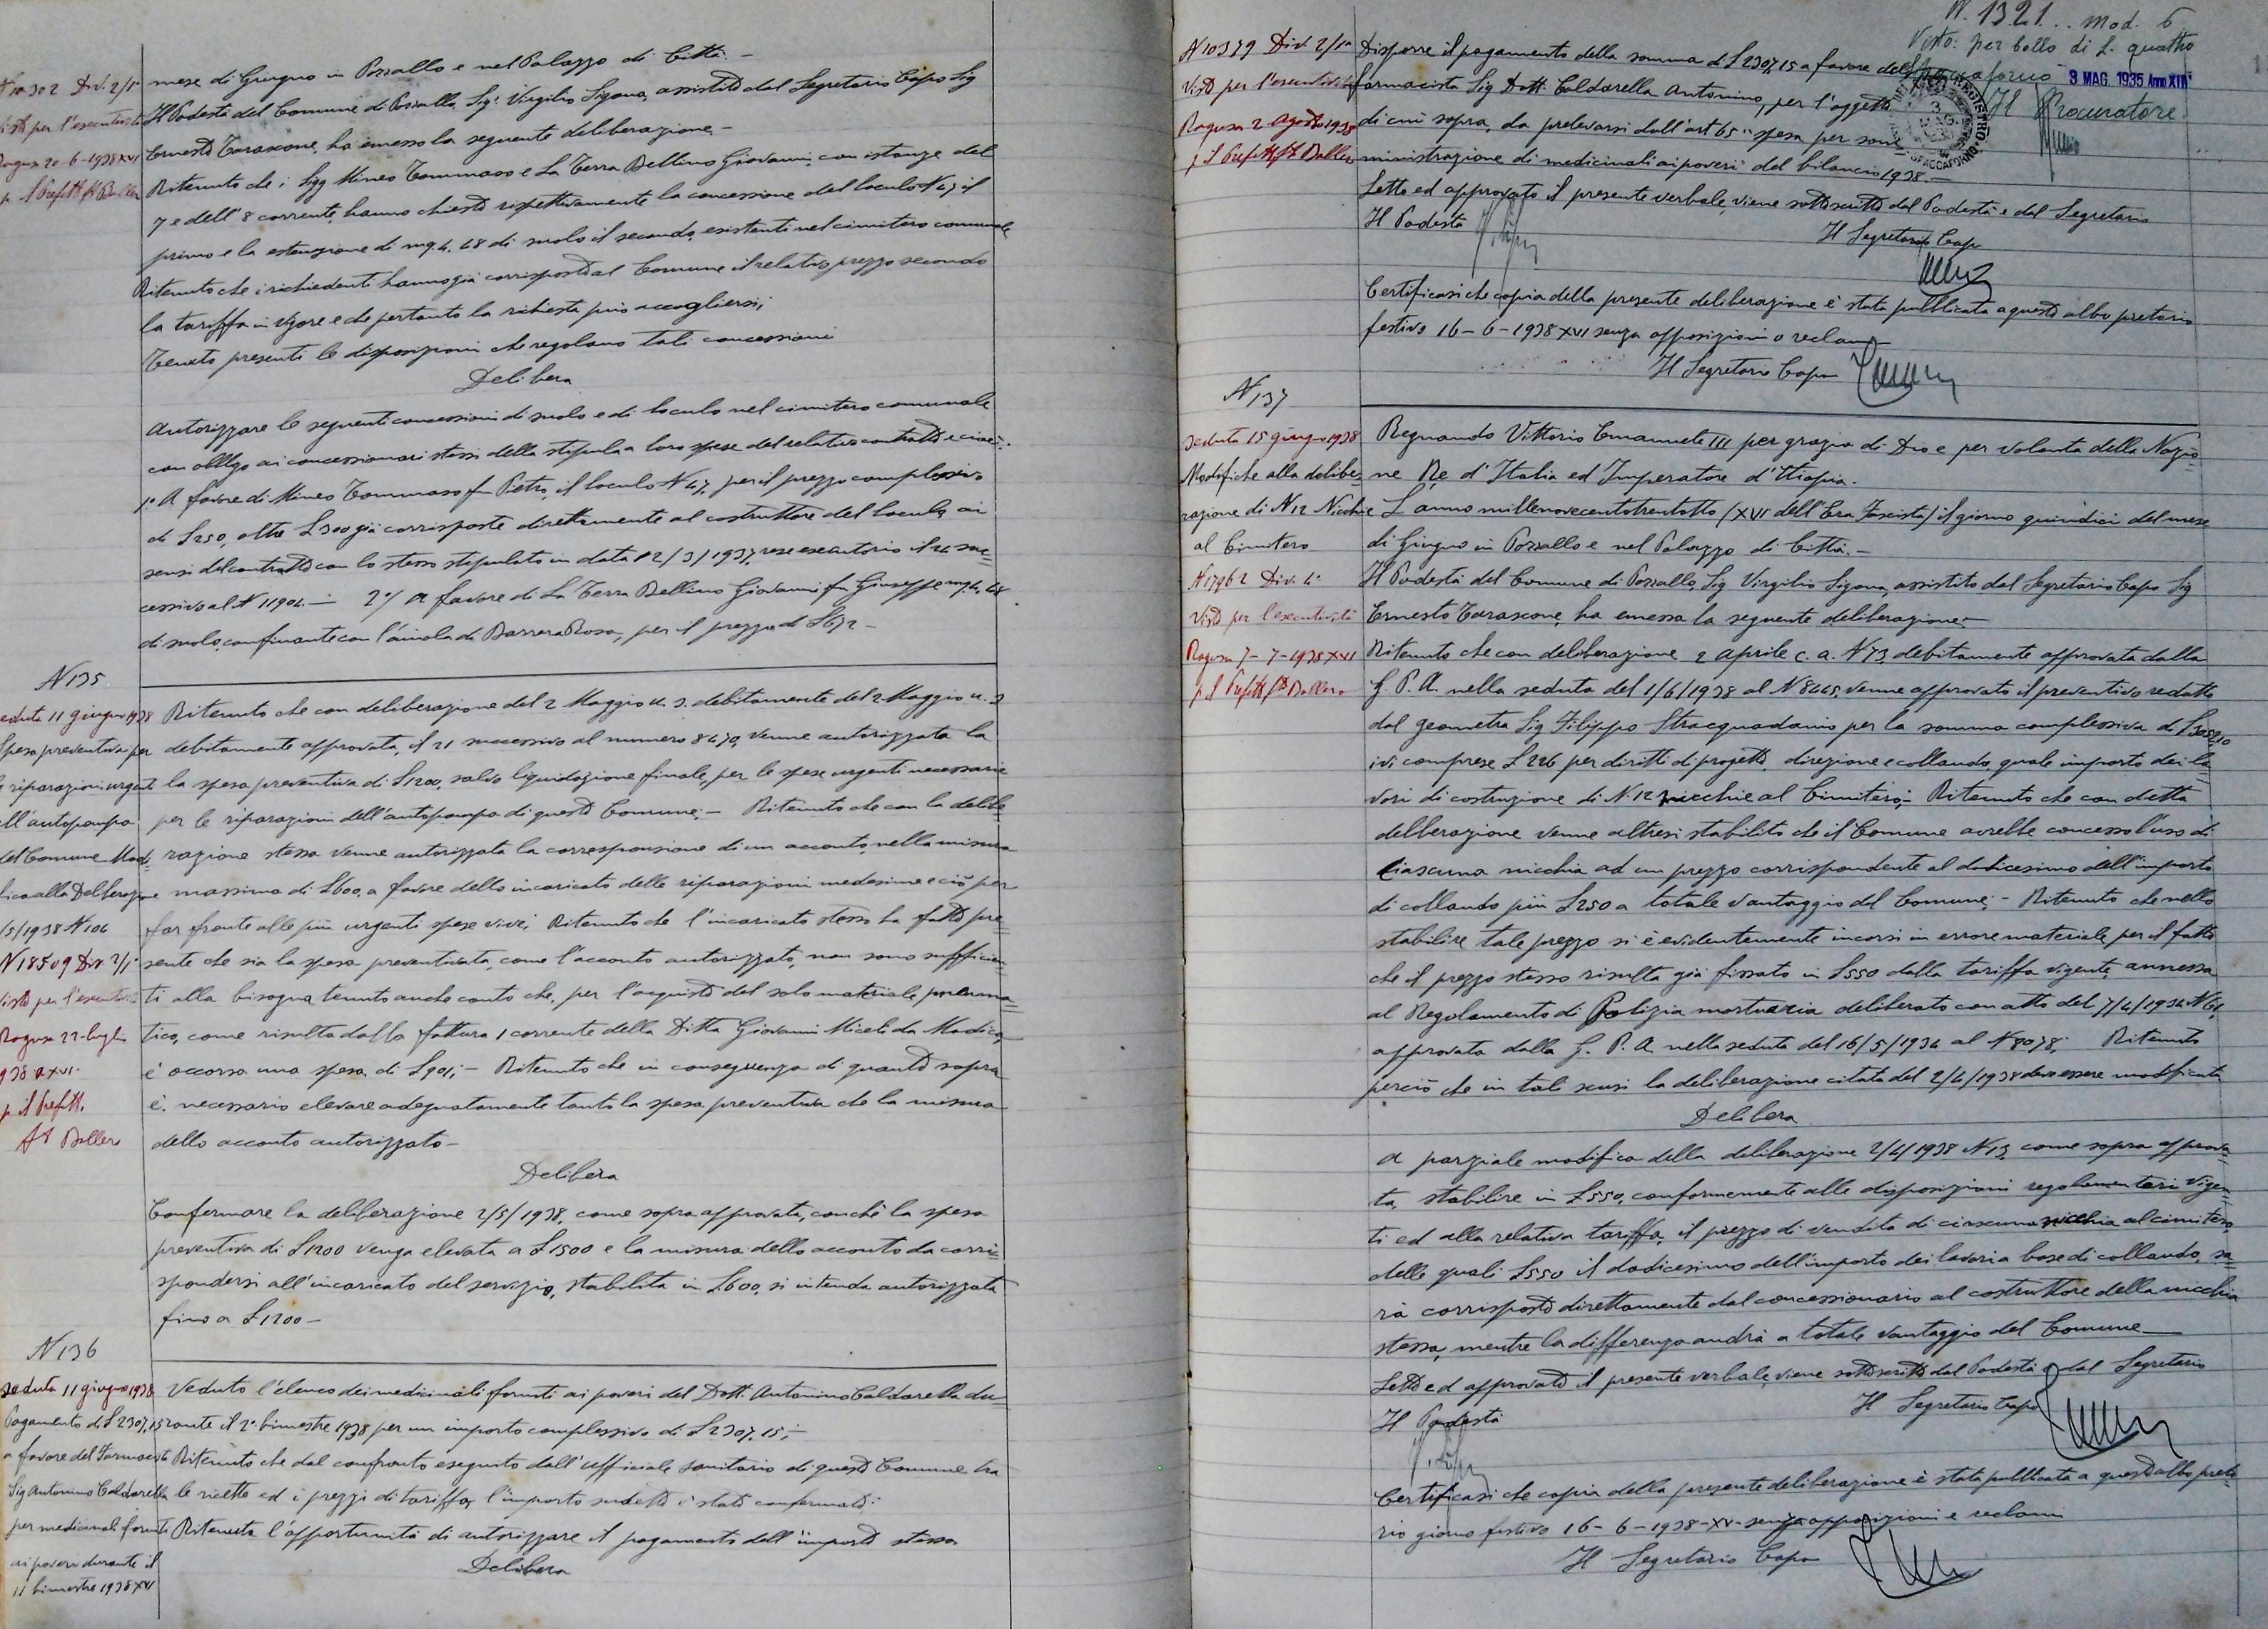 N 10302 Div. 2/1ª
Visto per l'esecutività
Ragusa 20-6-1938 XVI
p. Il Prefetto f.to Ballero
mese di Giugno in Pozzallo e nel Palazzo di Città.-
Il Podestà del Comune di Pozzallo, Sig. Virgilio Sigona, assistito dal Segretario Capo Sig
Ernesto Tarascone, ha emesso la seguente deliberazione.-
Ritenuto che i Sigg Mineo Tommaso e La Terra Bellino Giovanni, con istanze del
7 e dell'8 corrente, hanno chiesto rispettivamente la concessione del loculo N 47 il
primo e la estensione di mq. 4.48 di suolo il secondo, esistenti nel cimitero comunale
Ritenuto che i richiedenti hanno già corrisposto al Comune il relativo prezzo secondo
la tariffa in vigore e che pertanto la richiesta può accogliersi;
Tenuto presenti le disposizioni che regolano tali concessioni
Delibera
Autorizzare le seguenti concessioni di suolo e di loculo nel cimitero comunale
con obbligo ai concessionari stessi della stipula a loro spese del relativo contratto e cioè:
1º A favore di Mineo Tommaso fu Pietro, il loculo N 47, per il prezzo complessivo
di £ 250, oltre £ 300 già corrisposte direttamente al costruttore del loculo, ai
sensi del contratto con lo stesso stipulato in data 12/3/1937, reso esecutorio il 24 suc=
cessivo al N 11904.- 2º/ A favore di La Terra Bellino Giovanni fu Giuseppe mq. 4,48
di suolo, confinante con l'aiuola di Barrera Rosa, per il prezzo di £ 672-
N 135
seduta 11 giugno 1938
Spesa preventiva per
le riparazioni urgenti
all'autopompa
del Comune Modi=
fica alla Deliberazione
2/5/1938 N 106
N 18509 Div. 2/1ª
Visto per l'esecutività
Ragusa 22 luglio
1938 a XVI.
p. il Prefetto
f.to Ballero
Ritenuto che con deliberazione del 2 Maggio u. s. debitamente del 2 Maggio u. s
debitamente approvata, il 21 successivo al numero 8470, venne autorizzata la
la spesa preventiva di £ 1200, salvo liquidazione finale, per le spese urgenti necessarie
per le riparazioni dell'autopompa di questo Comune;- Ritenuto che con la delibe=
razione stessa venne autorizzata la corresponsione di un acconto, nella misura
massima di £ 600, a favore dello incaricato delle riparazioni medesime e ciò per
far fronte alle più urgenti spese vive; Ritenuto che l'incaricato stesso ha fatto pre=
sente che sia la spesa preventivata, come l'acconto autorizzato, non sono sufficien=
ti alla bisogna, tenuto anche conto che, per l'acquisto del solo materiale pneuma=
tico, come risulta dalla fattura 1 corrente della Ditta Giovanni Miceli da Modica,
è occorsa una spesa di £ 901;- Ritenuto che in conseguenza di quanto sopra
è necessario elevare adeguatamente tanto la spesa preventiva che la misura
dello acconto autorizzato-
Delibera
Confermare la deliberazione 2/5/1938, come sopra approvata, conché la spesa
preventiva di £ 1200 venga elevata a £ 1500 e la misura dello acconto da corri=
spondersi all'incaricato del servizio, stabilita in £ 600, si intenda autorizzata
fino a £ 1200-
N 136
seduta 11 giugno 1938
Pagamento di £ 2307,15
a favore del Farmacista
Sig Antonino Caldarella
per medicinali forniti
ai poveri durante il
II bimestre 1938 XVI
Veduto l'elenco dei medicinali forniti ai poveri dal Dott. Antonino Caldarella du=
rante il 2º bimestre 1938 per un importo complessivo di £ 2307,15;-
Ritenuto che dal confronto eseguito dall'ufficiale sanitario di questo Comune tra
le ricette ed i prezzi di tariffa, l'importo sudetto è stato confermato:
Ritenuta l'opportunità di autorizzare il pagamento dell'importo stesso
Delibera
N. 1321. Mod. 6
Visto: per bollo di £. quattro
Spaccaforno 3 MAG. 1935 Anno XIII
Il Procuratore
N 10379 Div. 2/1ª
Visto per l'esecutività
Ragusa 2 agosto 1938
p. il Prefetto f.to Ballero
Disporre il pagamento della somma di £ 2307,15 a favore del
farmacista Sig Dott. Caldarella Antonino, per l'oggetto
di cui sopra, da prelevarsi dall'art 65 "spesa per som=
ministrazione di medicinali ai poveri" del bilancio 1938.-
Letto ed approvato il presente verbale, viene sottoscritto dal Podestà e dal Segretario
Il Podestà
Il Segretario Capo
Certificasi che copia della presente deliberazione è stata pubblicata a questo albo pretorio
festivo 16-6-1938 XVI senza opposizioni o reclami
Il Segretario Capo
N 137
seduta 15 giugno 1938
Modifiche alla delibe=
razione di N 12 Nicchie
al Cimitero
N 17962 Div. 4ª
Visto per l'esecutività
Ragusa 7-7-1938 XVI
p. il Prefetto f.to Ballero
Regnando Vittorio Emanuele III per grazia di Dio e per volontà della Nazio=
ne Re d'Italia ed Imperatore d'Etiopia.
L'anno millenovecentotrentotto (XVI dell'Era Fascista) il giorno quindici del mese
di Giugno in Pozzallo e nel Palazzo di Città.-
Il Podestà del Comune di Pozzallo, Sig Virgilio Sigona, assistito dal Segretario Capo Sig
Ernesto Tarascone, ha emessa la seguente deliberazione:-
Ritenuto che con deliberazione 2 aprile c. a. N 73, debitamente approvata dalla
G. P. A. nella seduta del 1/6/1938 al N 8465, venne approvato il preventivo redatto
dal geometra Sig Filippo Stracquadanio per la somma complessiva di £ 3052,10
ivi comprese £ 226 per diritti di progetto, direzione e collaudo, quale importo dei la=
vori di costruzione di N. 12 nicchie al Cimitero;- Ritenuto che con detta
deliberazione venne altresì stabilito che il Comune avrebbe concesso l'uso di
ciascuna nicchia ad un prezzo corrispondente al dodicesimo dell'importo
di collaudo più £ 250 a totale vantaggio del Comune;- Ritenuto che nello
stabilire tale prezzo si è evidentemente incorsi in errore materiale, per il fatto
che il prezzo stesso risulta già fissato in £ 550 dalla tariffa vigente, annessa
al Regolamento di Polizia mortuaria deliberato con atto del 7/4/1934 N 61,
approvata dalla G. P. A nella seduta del 16/5/1934 al N 8078; Ritenuto
perciò che in tali sensi la deliberazione citata del 2/4/1938 deve essere modificata
Delibera
A parziale modifica della deliberazione 2/4/1938 N 73, come sopra approva=
ta, stabilire in £ 550, conformemente alle disposizioni regolamentari vigen=
ti ed alla relativa tariffa, il prezzo di vendita di ciascuna nicchia al cimitero,
delle quali £ 550 il dodicesimo dell'importo dei lavori a base di collaudo, sa=
rà corrisposto direttamente dal concessionario al costruttore della nicchia
stessa, mentre la differenza andrà a totale vantaggio del Comune
Letto ed approvato il presente verbale, viene sottoscritto dal Podestà e dal Segretario
Il Podestà
Il Segretario Capo
Certificasi che copia della presente deliberazione è stata pubblicata a questo albo preto=
rio giorno festivo 16-6-1938-XV- senza opposizioni e reclami
Il Segretario Capo